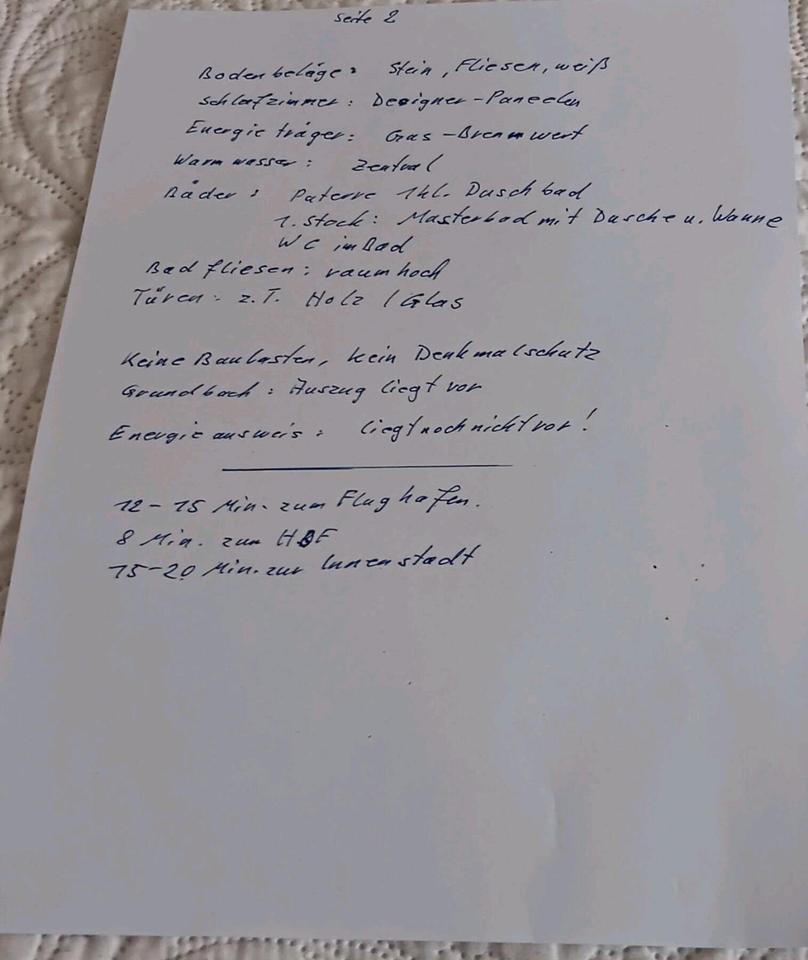 Seite 2
Bodenbeläge: Stein, Fliesen, weiß
Schlafzimmer: Designer-Paneelen
Energieträger: Gas-Brennwert
Warmwasser: Zentral
Bäder: Paterre Ikl. Duschbad
1. Stock: Masterbad mit Dusche u. Wanne
WC im Bad
Badfliesen: raumhoch
Türen: z.T. Holz / Glas
Keine Baulasten, kein Denkmalschutz
Grundbuch: Auszug liegt vor
Energieausweis: liegt noch nicht vor!
12-15 Min. zum Flughafen.
8 Min. zum HBF
15-20 Min. zur Innenstadt